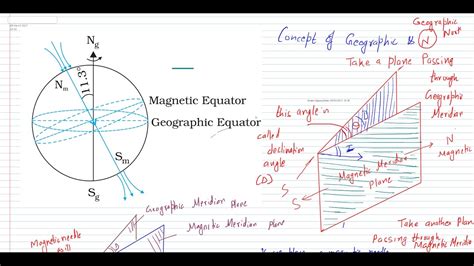 N
g
N
m
11.3°
Magnetic Equator
Geographic Equator
S
m
S
g
Geographic Meridian plane
Magnetic Meridian plane
Magnetic needle
Geographic
North
Concept of Geographic &
N
Take a Plane Passing
through
Geographic
Meridian
this angle is
called
declination
angle
(D)
S
S
Magnetic Meridian
Plane
N
Magnetic
Take another Plane
Passing through
Magnetic Meridian